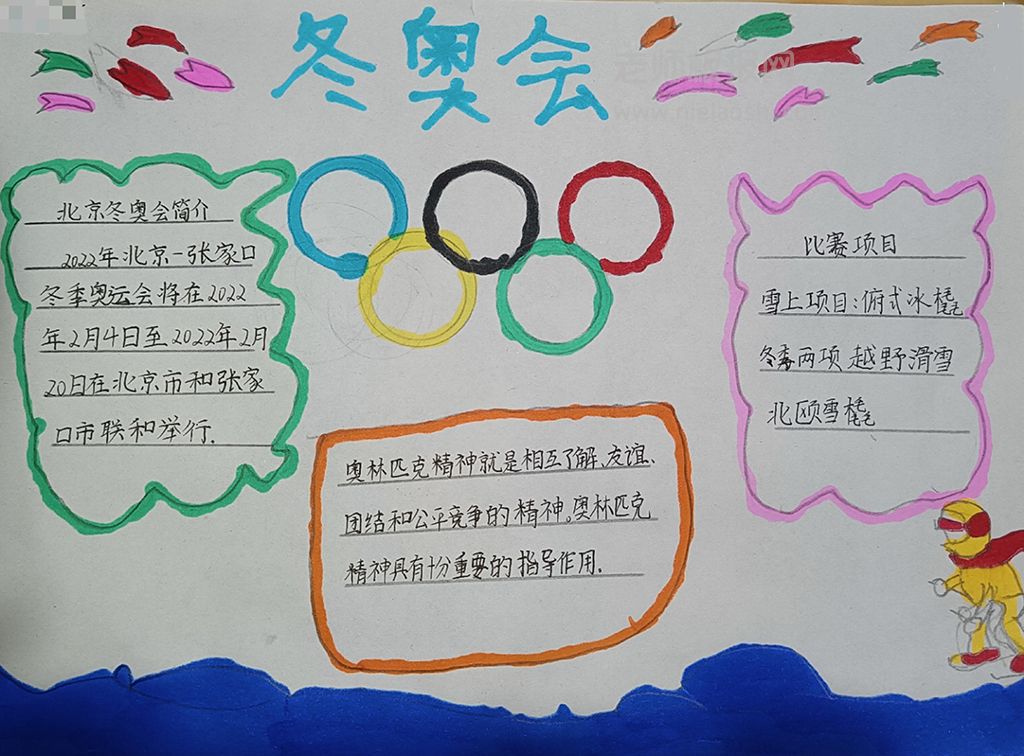 冬奥会
北京冬奥会简介
2022年北京-张家口
冬季奥运会将在2022
年2月4日至2022年2月
20日在北京市和张家
口市联和举行.
奥林匹克精神就是相互了解、友谊、
团结和公平竞争的精神。奥林匹克
精神具有十分重要的指导作用.
比赛项目
雪上项目:俯式冰橇
冬季两项 越野滑雪
北欧雪橇